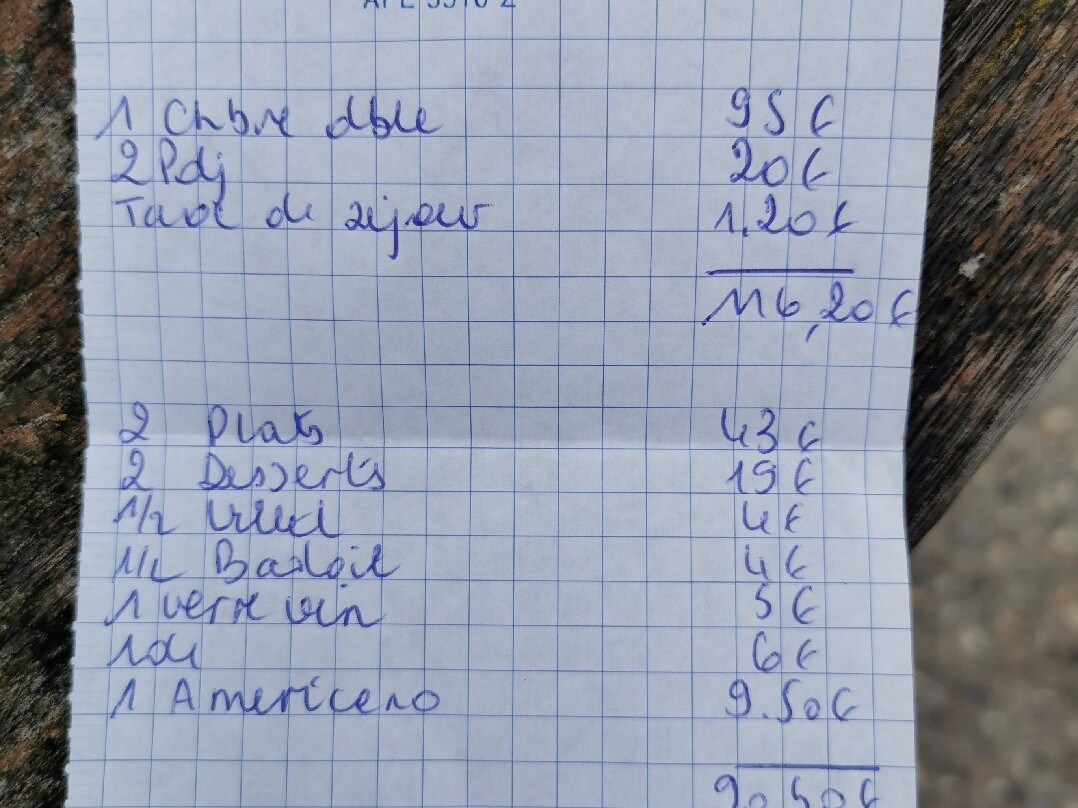 1 Chbre dble 95 €
2 Pdj 20 €
Taxe de séjour 1,20 €
116,20 €
2 Plats 43 €
2 Desserts 19 €
1/2 Vittel 4 €
1/2 Badoit 4 €
1 verre vin 5 €
1 de 6 €
1 Americano 9.50 €
90,50 €